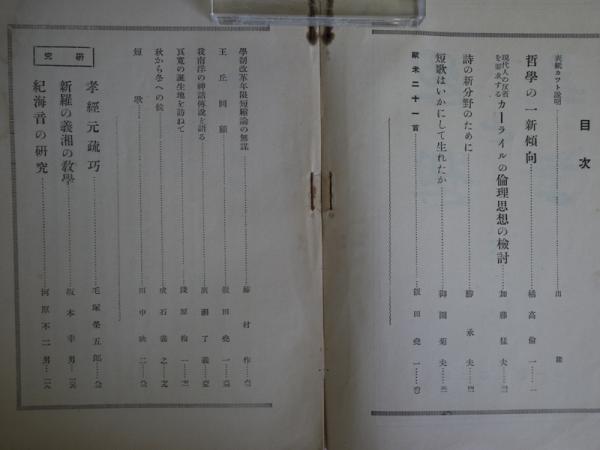 目次
表紙カツト說明
哲學の一新傾向 橘高倫一
現代人の反省を要求する カーライルの倫理思想の檢討 加藤猛夫
詩の新分野のために 勝承夫
短歌はいかにして生れたか 御園菊夫
歐米二十一首 飯田堯一
學制改革年限短縮論の無謀 藤村作
王丘回顧 飯田堯一
我南洋の神話傳說を語る 廣瀨了義
良寬の誕生地を訪ねて
秋から冬への候 成石義之
短歌 田中
硏究
孝經元疏巧 毛塚榮五郎
新羅の義湘の敎學 坂本幸男
紀海音の硏究 河原不二男